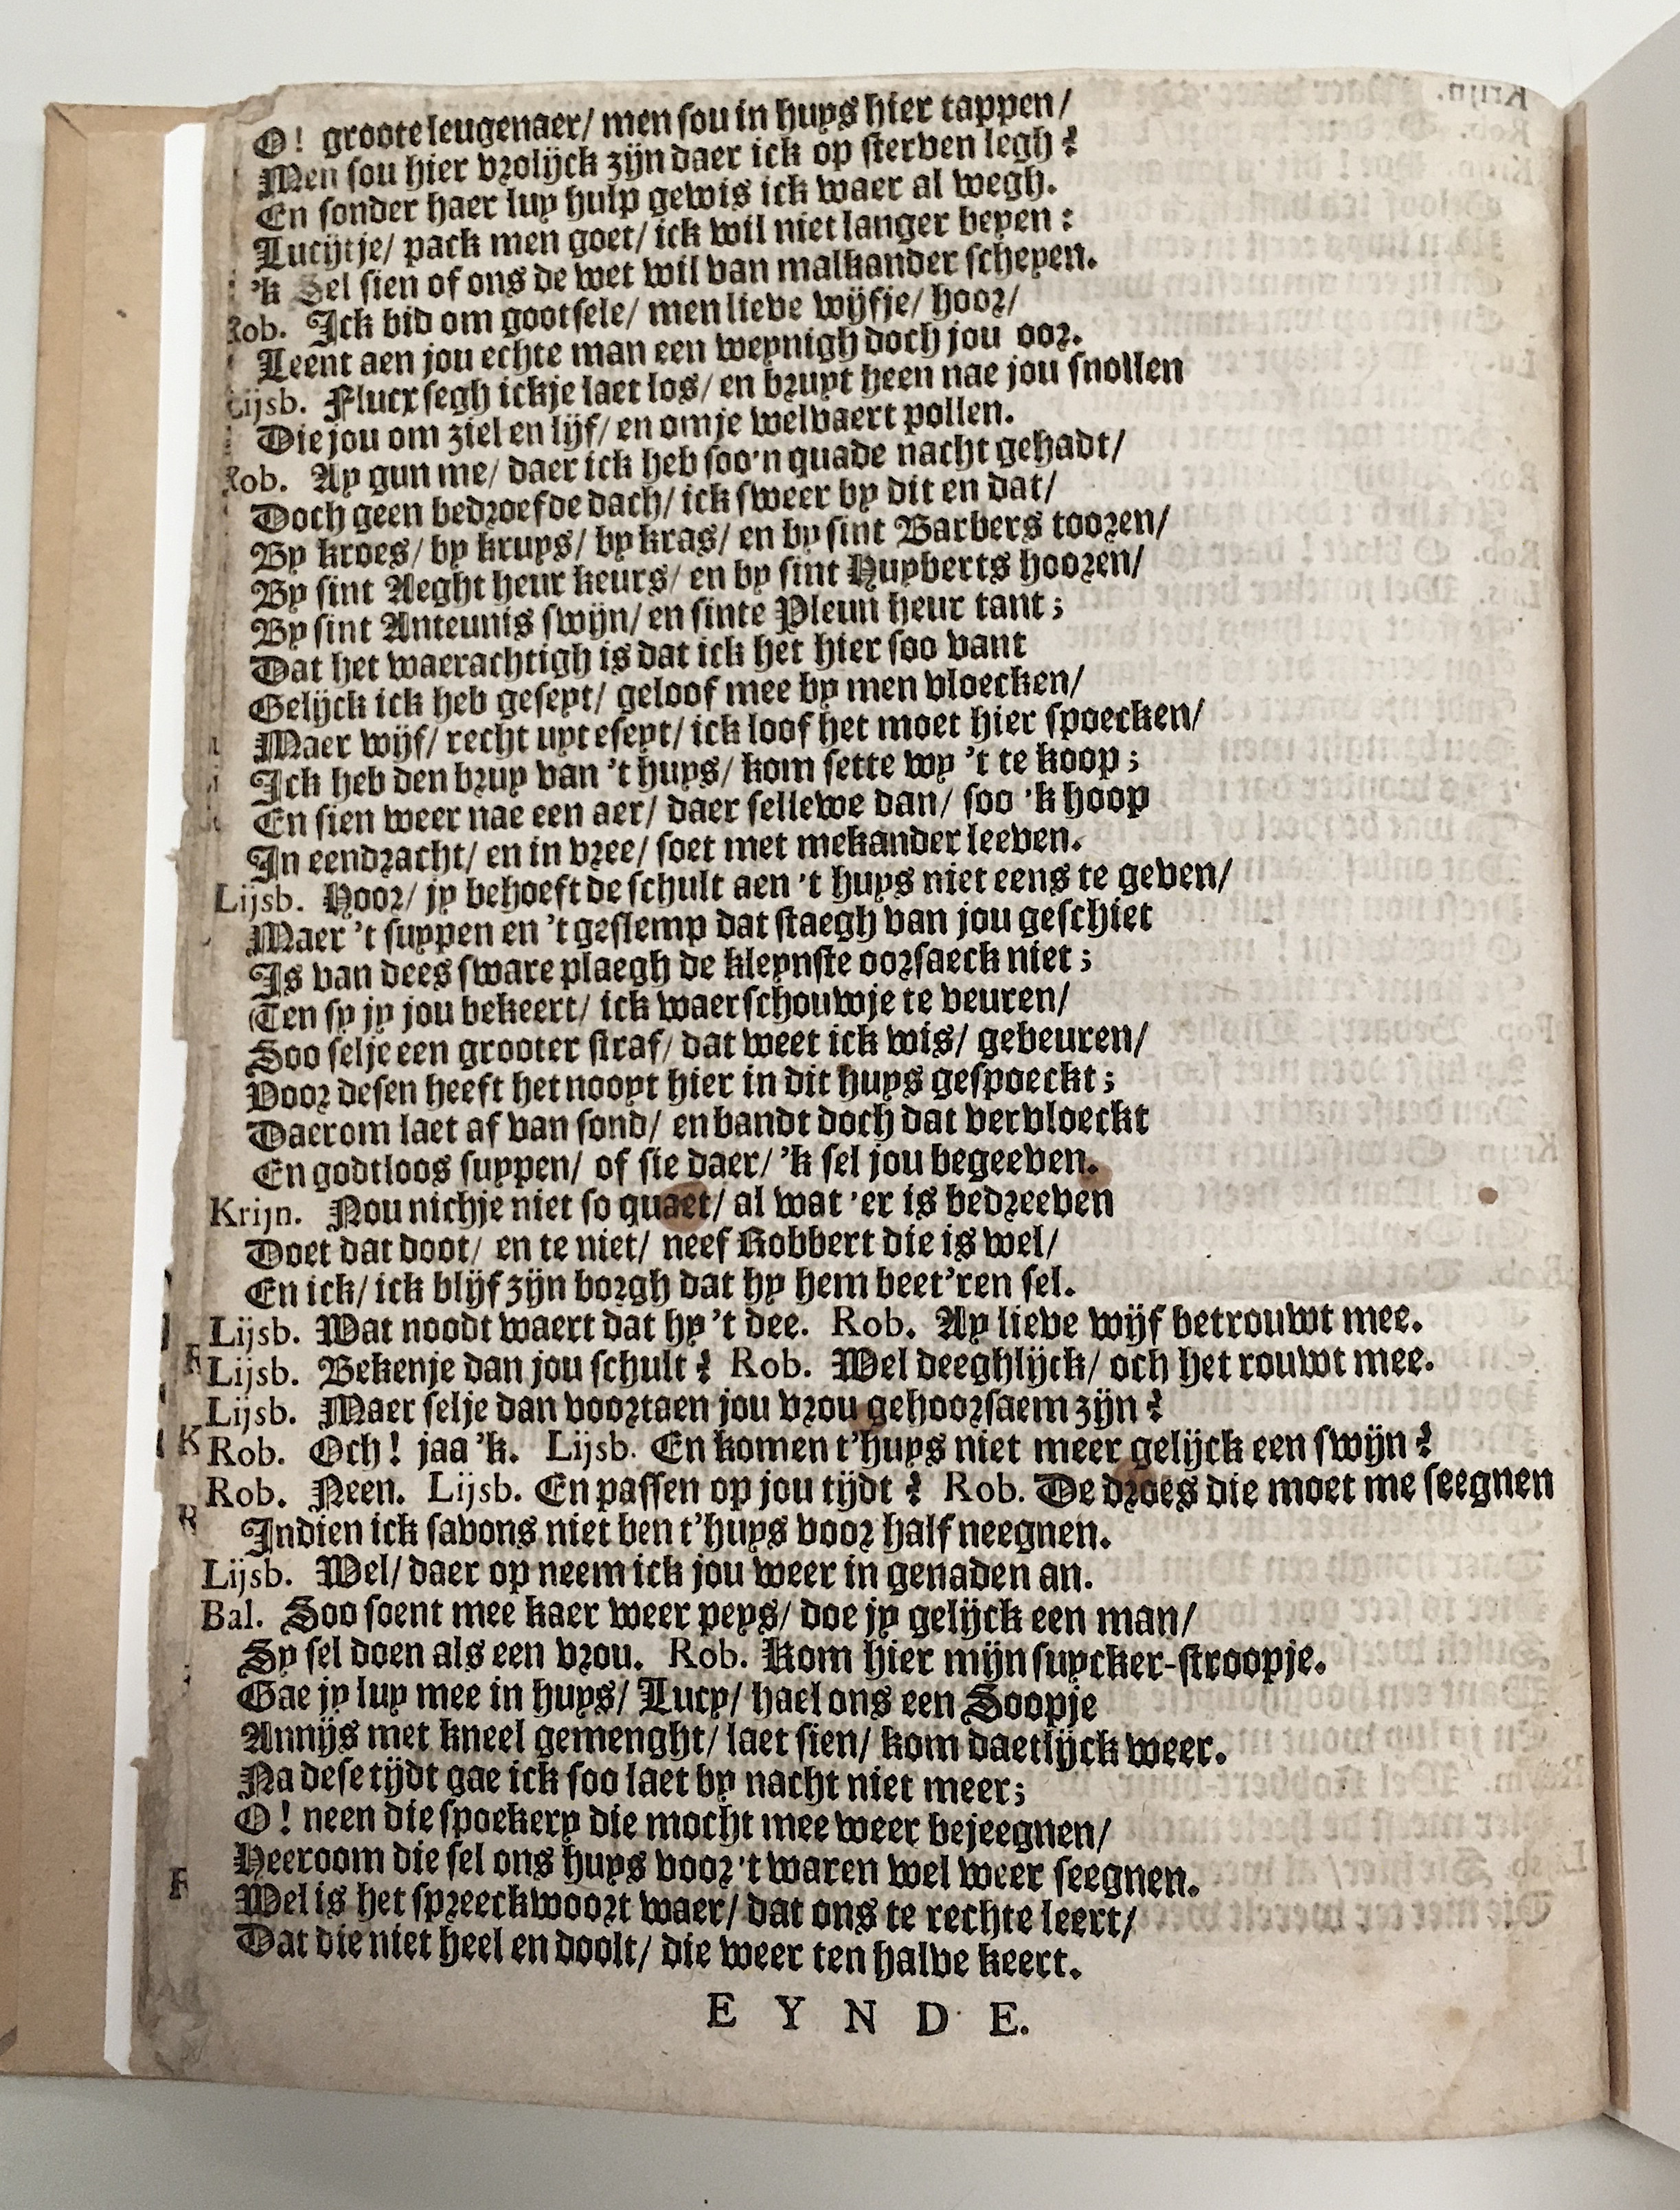 O! groote leugenaer/ men sou in huys hier tappen/
Men sou hier vrolijck zijn daer ick op sterven legh?
En sonder haer luy hulp gewis ick waer al wegh.
Lucijtje/ pack men goet/ ick wil niet langer beyen:
'k Sel sien of ons de wet wil van malkander scheyen.
Rob. Ick bid om gootsele/ men lieve wijfje/ hoor/
Leent aen jou echte man een weynigh doch jou oor.
Lijsb. Flucx segh ickje laet los/ en bruyt heen nae jou snollen
Die jou om ziel en lijf/ en om je welvaert pollen.
Rob. Ay gun me/ daer ick heb soo'n quade nacht gehadt/
Doch geen bedroefde dach/ ick sweer by dit en dat/
By kroes/ by kruys/ by kras/ en by sint Barbers tooren/
By sint Aeght heur keurs/ en by sint Huyberts hooren/
By sint Anteunis swijn/ en sinte Pleun heur tant;
Dat het waerachtigh is dat ick het hier soo vant
Gelijck ick heb geseyt/ geloof mee by men vloecken/
Maer wijf/ recht uyt eseyt/ ick loof het moet hier spoecken/
Ick heb den bruy van 't huys/ kom sette wy 't te koop;
En sien weer nae een aer/ daer sellewe dan/ soo 'k hoop
In eendracht/ en in vree/ soet met mekander leeven.
Lijsb. Hoor/ jy behoeft de schult aen 't huys niet eens te geven/
Maer 't suypen en 't geslemp dat staegh van jou geschiet
Is van dees sware plaegh de kleynste oorsaeck niet;
Ten sy jy jou bekeert/ ick waerschouwje te veuren/
Soo selje een grooter straf/ dat weet ick wis/ gebeuren/
Voor desen heeft het nooyt hier in dit huys gespoeckt;
Daerom laet af van sond/ en bandt doch dat vervloeckt
En godtloos suypen/ of sie daer/ 'k sel jou begeeven.
Krijn. Nou nichje niet so quaet/ al wat 'er is bedreeven
Doet dat doot/ en te niet/ neef Robbert die is wel/
En ick/ ick blijf zijn borgh dat hy hem beet'ren sel.
Lijsb. Wat noodt waert dat hy 't dee. Rob. Ay lieve wijf betrouwt mee.
Lijsb. Bekenje dan jou schult? Rob. Wel deeghlijck/ och het rouwt mee.
Lijsb. Maer selje dan voortaen jou vrou gehoorsaem zijn?
Rob. Och! jaa 'k. Lijsb. En komen t'huys niet meer gelijck een swijn?
Rob. Neen. Lijsb. En passen op jou tijdt? Rob. De droes die moet me seegnen
Indien ick savons niet ben t'huys voor half neegnen.
Lijsb. Wel/ daer op neem ick jou weer in genaden an.
Bal. Soo soent mee kaer weer peys/ doe jy gelijck een man/
Sy sel doen als een vrou. Rob. Kom hier mijn suycker-stroopje.
Gae jy luy mee in huys/ Lucy/ hael ons een Soopje
Annijs met kneel gemenght/ laet sien/ kom daetlijck weer.
Na dese tijdt gae ick soo laet by nacht niet meer;
O! neen die spoekery die mocht mee weer bejeegnen/
Heeroom die sel ons huys voor 't waren wel weer seegnen.
Wel is het spreeckwoort waer/ dat ons te rechte leert/
Dat die niet heel en doolt/ die weer ten halve keert.
EYNDE.